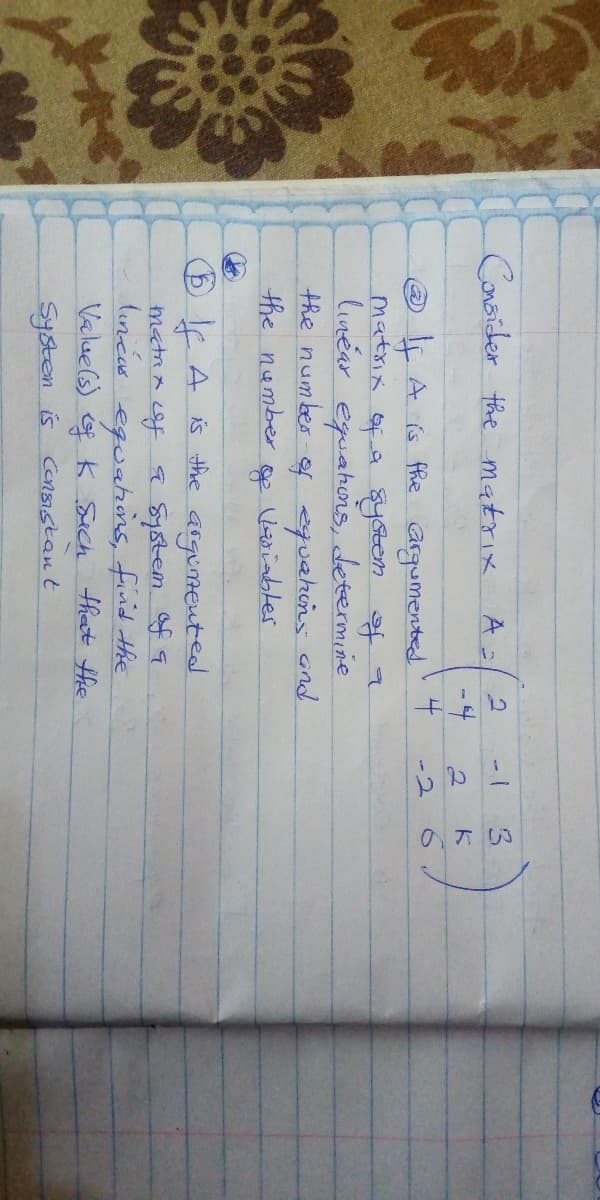 Consider the matrix A = ( 2 -1 3
-4 2 K
4 -2 6 )
(a) If A is the argumented
matrix of a system of a
linear equations, determine
the number of equations and
the number of variables
(b) If A is the argumented
matrix of a system of a
linear equations, find the
Value(s) of K Such that the
System is Consistant